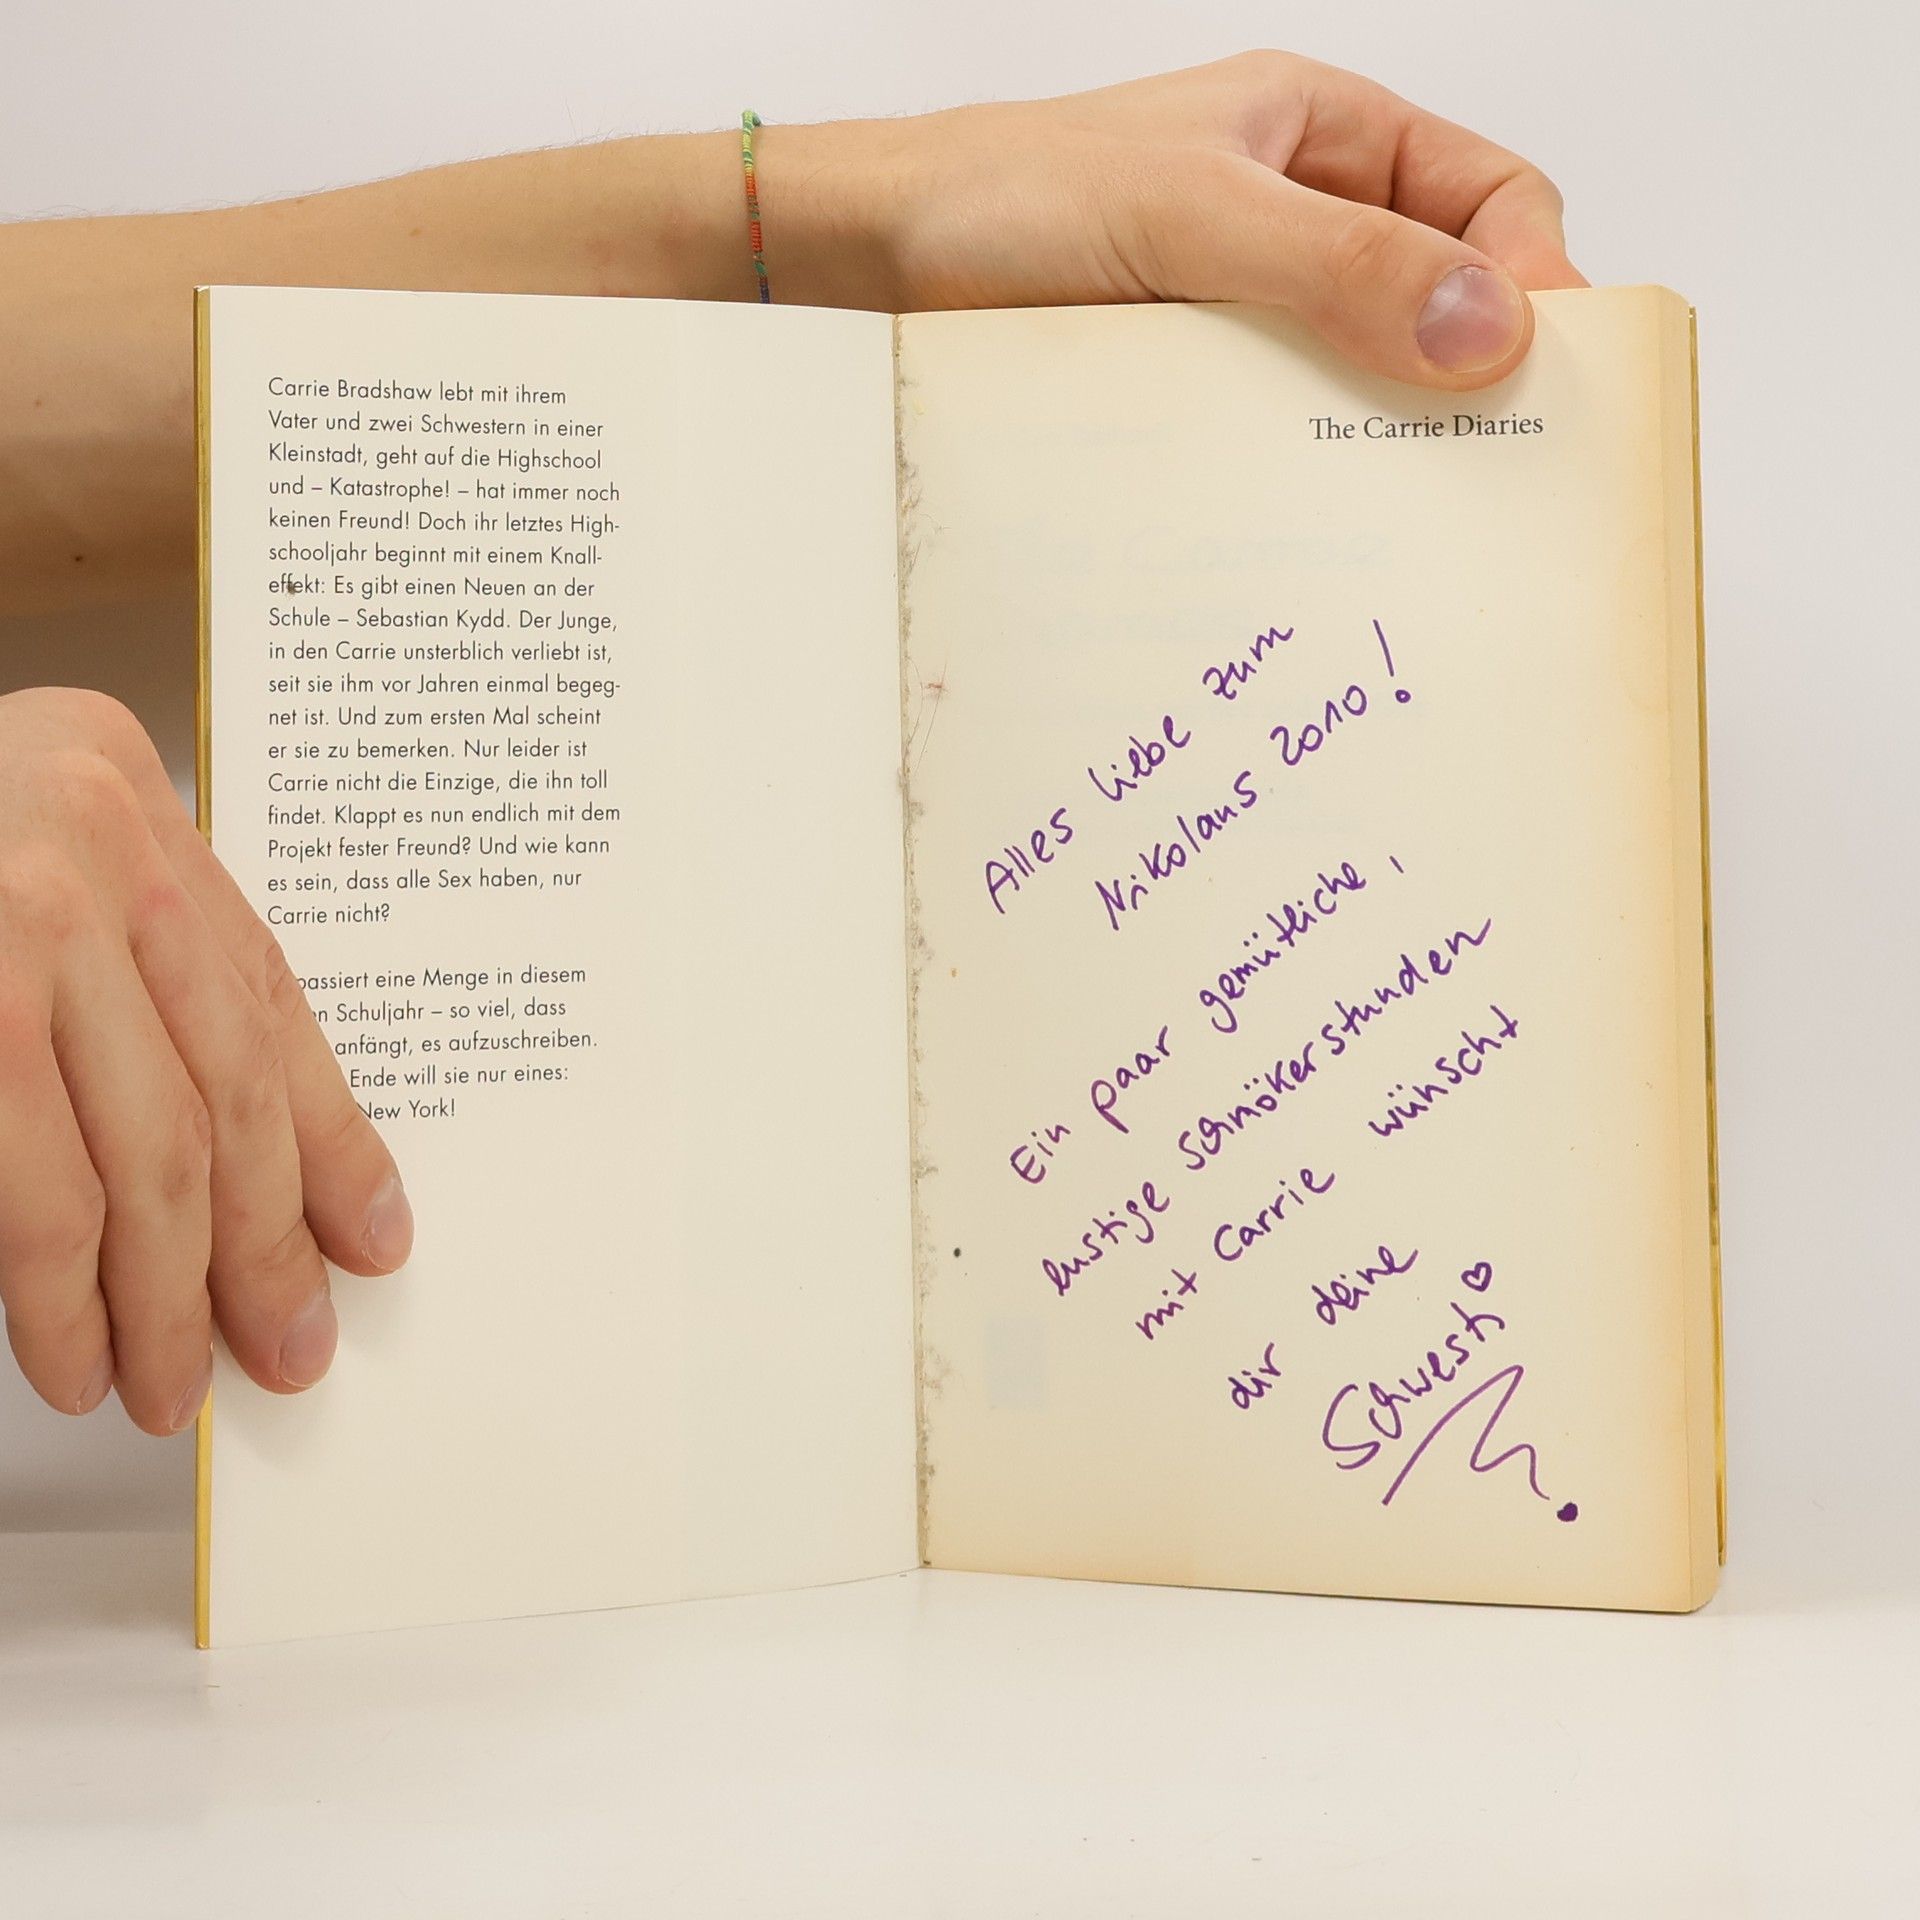 Carrie Bradshaw lebt mit ihrem
Vater und zwei Schwestern in einer
Kleinstadt, geht auf die Highschool
und – Katastrophe! – hat immer noch
keinen Freund! Doch ihr letztes High-
schooljahr beginnt mit einem Knall-
effekt: Es gibt einen Neuen an der
Schule – Sebastian Kydd. Der Junge,
in den Carrie unsterblich verliebt ist,
seit sie ihm vor Jahren einmal begeg-
net ist. Und zum ersten Mal scheint
er sie zu bemerken. Nur leider ist
Carrie nicht die Einzige, die ihn toll
findet. Klappt es nun endlich mit dem
Projekt fester Freund? Und wie kann
es sein, dass alle Sex haben, nur
Carrie nicht?
passiert eine Menge in diesem
Schuljahr – so viel, dass
anfängt, es aufzuschreiben.
Ende will sie nur eines:
New York!
The Carrie Diaries
Alles Liebe zum
Nikolaus 2010!
Ein paar gemütliche,
lustige Schmökerstunden
mit Carrie wünscht
dir deine
Schwesti